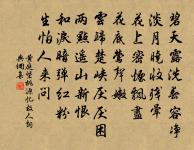 碧天露洗春容淨
淡月曉收殘暈
花上密煙飄盡
花底鶯聲嫩
雲歸楚峽厭厭困
兩點遙山新恨
和淚暗彈紅粉
生怕人來問
黃庭堅桃源憶故人詞